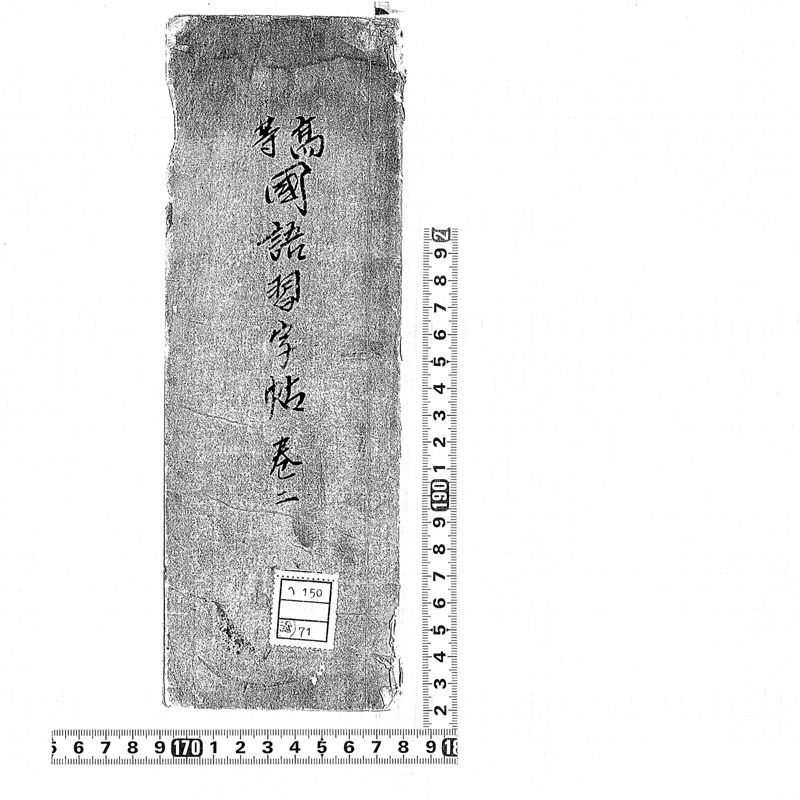 高等國語習字帖 卷二
へ 150
71
2
9
8
7
6
5
4
3
2
1
190
9
8
7
6
5
4
3
2
5 6 7 8 9 170 1 2 3 4 5 6 7 8 9 18